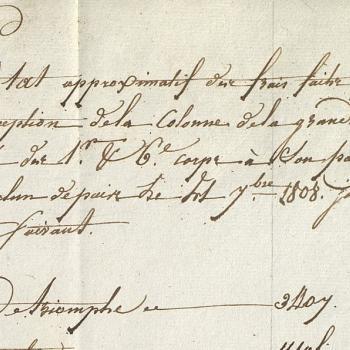 tat approximatif des frais faits
ception de la Colonne de la grande
des 1.er & 6.e corps à Son pa
depuis le 7.bre 1808. j
suivant.
de triomphe 3407.